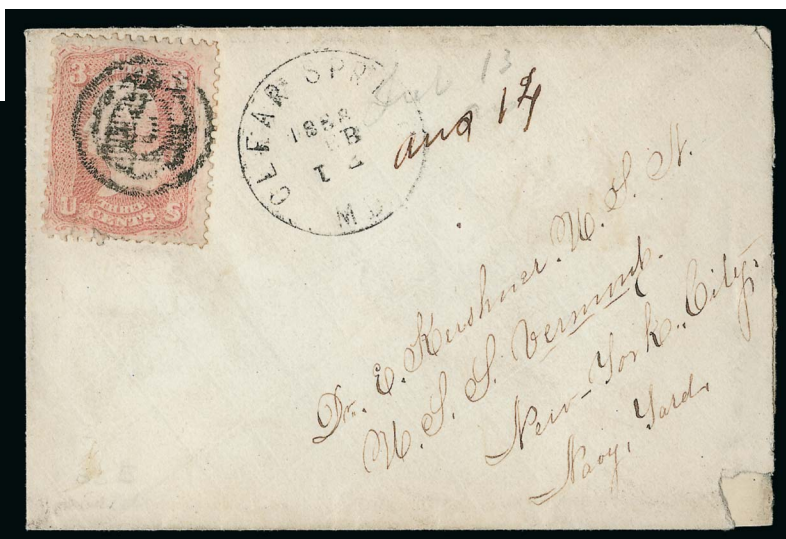 3 3
U S
THREE
CENTS
CLEAR SPRI
1868
M D
Feb 13
ans 14
Dr. E. Kershner U. S. N.
U. S. S. Vermont.
New-York. City.
Navy, Yard,